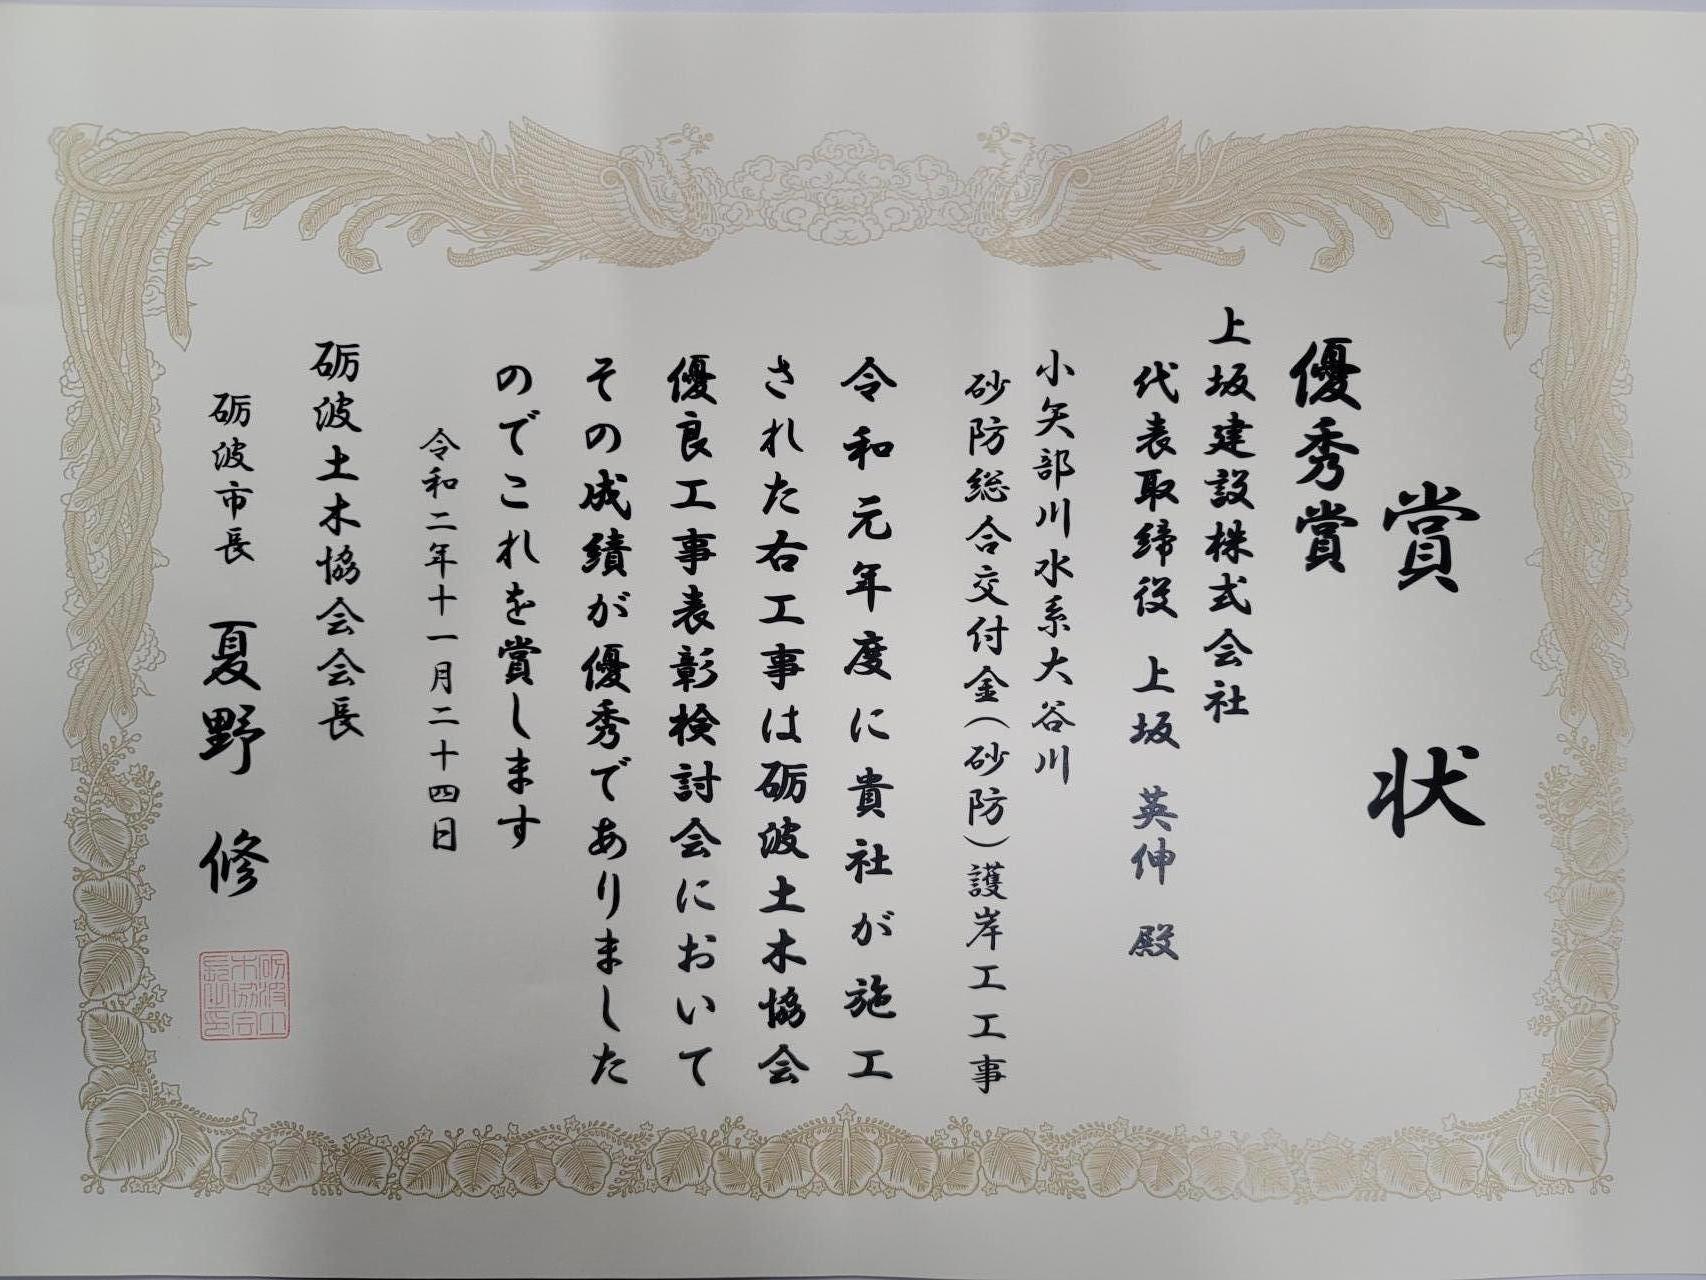 賞状
優秀賞
上坂建設株式会社
代表取締役 上坂 英伸 殿
小矢部川水系大谷川
砂防総合交付金(砂防)護岸工工事
令和元年度に貴社が施工
された右工事は砺波土木協会
優良工事表彰検討会において
その成績が優秀でありました
のでこれを賞します
令和二年十一月二十四日
砺波土木協会会長
砺波市長 夏野 修
砺波土
木協会
長之印